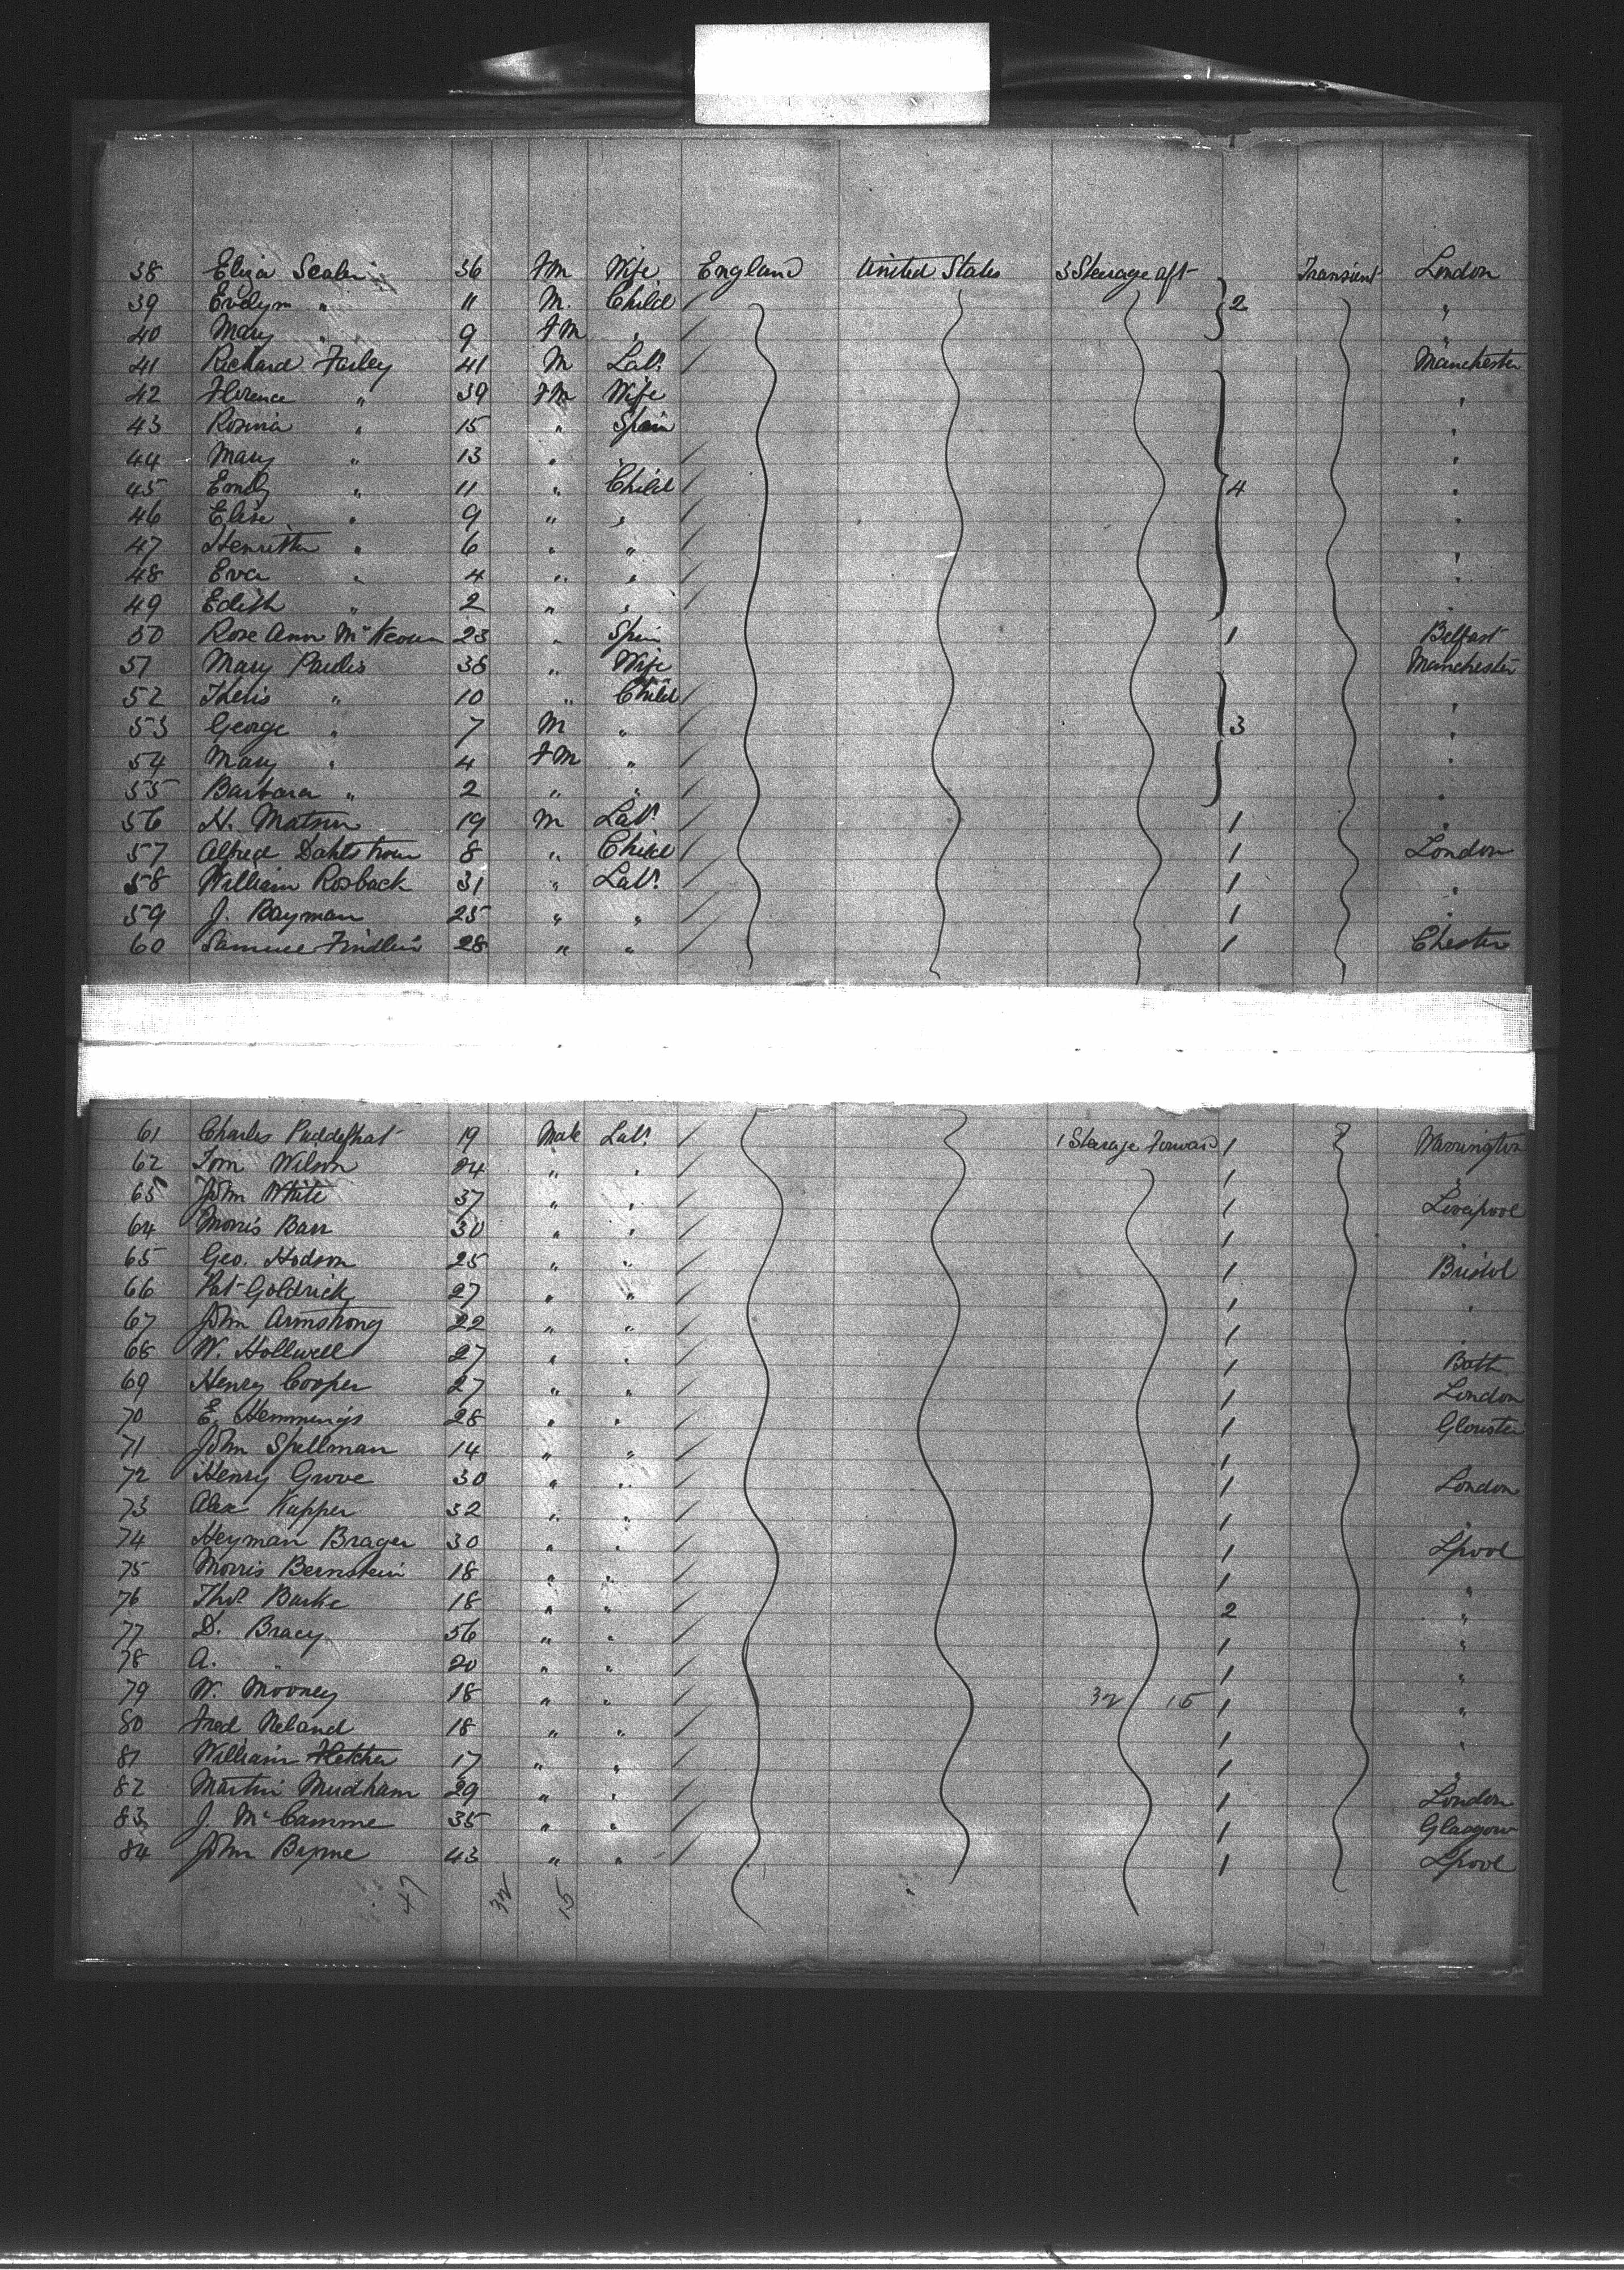 38 Eliza Sealin 36 Fm Wife England United States 3 Steerage aft Transient London
39 Evelyn " 11 M. Child / 2 "
40 Mary " 9 Fm " / "
41 Richard Farley 41 M Labr. / Manchester
42 Florence " 39 Fm Wife / "
43 Rosina " 15 " Spin "
44 Mary " 13 " " / "
45 Emily " 11 " Child / 4 "
46 Elise " 9 " " / "
47 Henritta " 6 " " / "
48 Eva " 4 " " / "
49 Edith " 2 " " / "
50 Rose Ann McKeown 23 " Spin 1 Belfast
51 Mary 36 " Wife Manchester
52 " 10 " Child / "
53 George " 7 M " / 3 "
54 Mary " 4 Fm " / "
55 Barbara " 2 " " / "
56 H. Matson 19 M Labr. / 1 "
57 Alfred Dahlstrom 8 " Child / 1 London
58 William Rosback 31 " Labr. / 1 "
59 J. Bayman 25 " " / 1 "
60 Samuel 28 " " / 1 Chester
61 Charles Puddephat 19 Male Labr. / 1 Steerage Forward 1 Warrington
62 Tom Wilson 24 " " / 1 "
63 John White 37 " " / 1 Liverpool
64 Morris Barr 30 " " / 1 "
65 Geo. Hodson 25 " " / 1 Bristol
66 Pat Goldrick 27 " " / 1 "
67 John Armstrong 22 " " / 1 "
68 W. Hollwell 27 " " / 1 Bath
69 Henry Cooper 27 " " / 1 London
70 E. Hemmings 28 " " / 1 Glouster
71 John Spellman 14 " " / 1
72 Henry Grove 30 " " / 1 London
73 Alex Kupper 32 " " / 1 "
74 Heyman Brager 30 " " / 1 Lpool
75 Morris Bernstein 18 " " / 1 "
76 Thos Burke 18 " " / 2 "
77 D. Bracy 56 " " / 1 "
78 A. " 20 " " / 1 "
79 W. Mooney 18 " " / 32 15 1 "
80 Fred Neland 18 " " / 1 "
81 William Fletcher 17 " " / 1 "
82 Martin Mudham 29 " " / 1 London
83 J. McCamme 35 " " / 1 Glasgow
84 John Byrne 43 " " / 1 Lpool
47 32 15